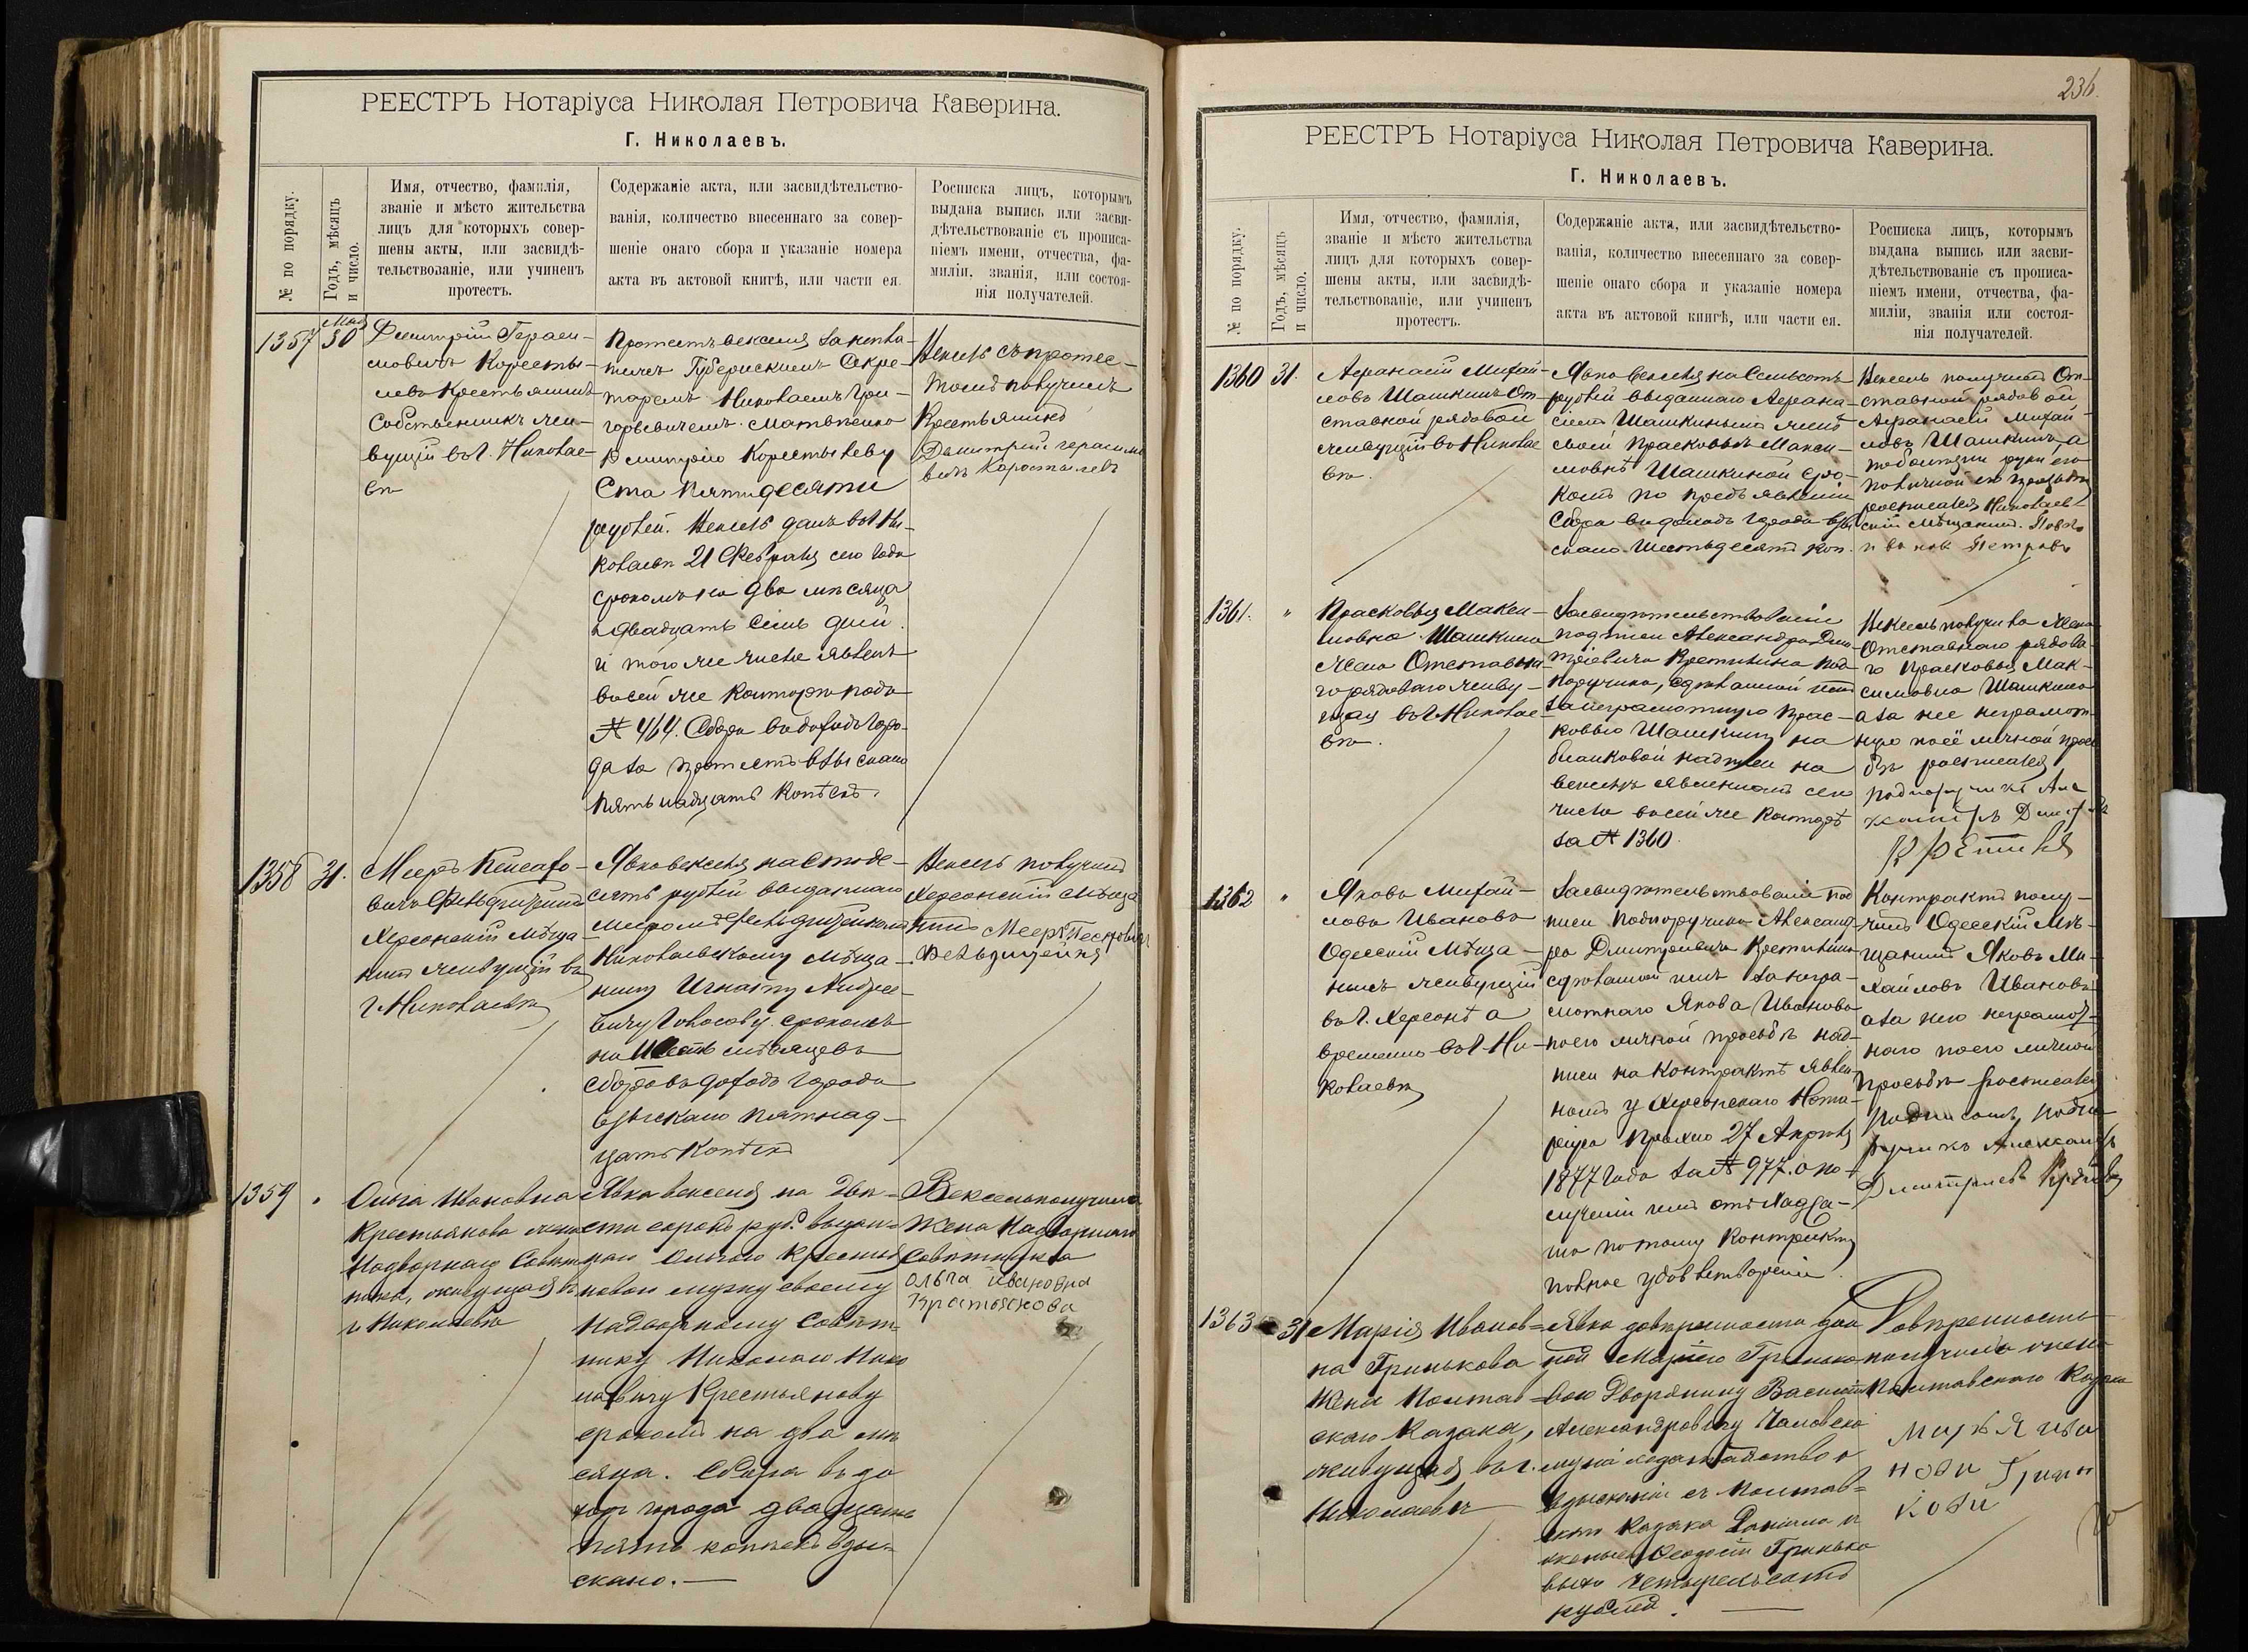 РЕЕСТРЪ Нотаріуса Николая Петровича Каверина.
Г. Николаевъ.
№ по порядку.
Годъ, мѣсяцъ
и число.
Имя, отчество, фамилія,
званіе и мѣсто жительства
лицъ для которыхъ совер-
шены акты, или засвидѣ-
тельствованіе, или учиненъ
протестъ.
Содержаніе акта, или засвидѣтельство-
ванія, количество внесеннаго за совер-
шеніе онаго сбора и указаніе номера
акта въ актовой книгѣ, или части ея.
Росписка лицъ, которымъ
выдана выпись или засви-
дѣтельствованіе съ прописа-
ніемъ имени, отчества, фа-
миліи, званія, или состоя-
нія получателей.
1357
Мая
30
Дмитрій Гераси-
мовичъ Коросты-
левъ Крестьянинъ
Собственникъ жи-
вущій въ г. Николае-
вѣ
Протестъ векселя
Губернскимъ Секре-
таремъ Николаемъ Гри-
горьевичемъ Матвѣенко
Дмитрію Коростылеву
Ста пятидесяти
рублей. Вексель данъ въ г. Ни-
колаевѣ 21 Февраля сего года
срокомъ на два мѣсяца
и двадцать семь дней
и того же числа явленъ
въ сей же Конторѣ подъ
№ 464. Сбора въ доходъ горо-
да за протестъ взыскано
пятьнадцать копѣекъ.
Вексель съ протес-
томъ получилъ
Крестьянинъ
Дмитрий герасимо
вичъ Коростылевъ
1358
31.
Мееръ
вичъ Фельдштейнъ
Херсонскій мѣща-
нинъ живущій въ
г. Николаевѣ
Явка векселя на сто де-
сять рублей выданнаго
Мееромъ Фельдштейномъ
Николаевскому мѣща-
нину Игнатію Андрее-
вичу Головову срокомъ
на Шесть мѣсяцевъ
сбора въ доходъ города
взыскано пятнад-
цать копѣекъ
Вексель получилъ
Херсонскій мѣща
нинъ Мееръ
Фельдштейнъ
1359
"
Ольга Ивановна
Крестьянова жена
Надворнаго Совѣт
ника, живущая въ
г. Николаевѣ
Явка векселя на двѣ-
сти сорокъ руб. выдан-
наго Ольгою Крестья
новою мужу своему
Надворному Совѣт-
нику Николаю Нико
лаевичу Крестьянову
срокомъ на два мѣ
сяца. Сбора въ до
ходъ города двадцать
пять копѣекъ взы-
скано.
Вексель получила
жена Надворнаго
Совѣтника
Ольга Ивановна
Крестьянова
236.
РЕЕСТРЪ Нотаріуса Николая Петровича Каверина.
Г. Николаевъ.
№ по порядку.
Годъ, мѣсяцъ
и число.
Имя, отчество, фамилія,
званіе и мѣсто жительства
лицъ для которыхъ совер-
шены акты, или засвидѣ-
тельствованіе, или учиненъ
протестъ.
Содержаніе акта, или засвидѣтельство-
ванія, количество внесеннаго за совер-
шеніе онаго сбора и указаніе номера
акта въ актовой книгѣ, или части ея.
Росписка лицъ, которымъ
выдана выпись или засви-
дѣтельствованіе съ прописа-
ніемъ имени, отчества, фа-
миліи, званія или состоя-
нія получателей.
1360
31.
Афанасій Михай-
ловъ Шашкинъ От-
ставной рядовой
живущій въ Николае
вѣ.
Явка векселя на Семьсотъ
рублей выданнаго Афана-
сіемъ Шашкинымъ женѣ
своей Прасковьѣ Макси-
мовнѣ Шашкиной сро-
комъ по предъявленіи
Сбора въ доходъ города взы
скано шестьдесятъ коп.
Вексель получилъ От-
ставной рядовой
Афанасій Михай-
ловъ Шашкинъ а
по личной его просьбѣ
росписался Николаев-
скій мѣщанинъ.
Петровъ
1361.
"
Прасковья Макси-
мовна Шашкина
жена Отставна-
го рядоваго живу-
щая въ г. Николае-
вѣ.
Засвидѣтельствованіе
подписи Александра Дми-
тріевича Кретинина под-
поручика, сдѣланной имъ
за неграмотную Прас-
ковью Шашкину на
бланковой надписи на
векселѣ явленномъ сего
числа въ сей же Конторѣ
за № 1360
Вексель получила жена
Отставнаго рядова-
го Прасковья Мак-
симовна Шашкина
а за нее неграмот-
ную по её личной прось
бѣ росписался
подпоручикъ Але
1362
"
Яковъ Михай-
ловъ Ивановъ
Одесскій мѣща-
нинъ живущій
въ г. Херсонѣ а
временно въ г. Ни-
колаевѣ
Засвидѣтельствованіе под
писи Подпоручика Александ-
ра Дмитріевича Кретинина
сдѣланной имъ за негра-
мотнаго Якова Иванова
по его личной просьбѣ над-
писи на контрактѣ явлен-
номъ у Херсонскаго Нота-
ріуса 27 Апрѣля
1877 года за № 977. о по-
лученіи имъ отъ
по тому контракту
полное удовлетвореніе.
Контрактъ полу-
чилъ Одесскій Мѣ-
щанинъ Яковъ Ми-
хайловъ Ивановъ
а за него неграмот-
наго по его личной
просьбѣ росписался
подпо
ручикъ Александръ
Дмитріевъ
1363
31
Марія Иванов-
на Гринькова
жена Полтав-
скаго Казака,
живущая въ г.
Николаевѣ
Явка довѣренности дан
ной Маріею Гринько
вою Дворянину Василію
Александровичу
ходатайство о
взысканіи съ Полтав-
скаго Казака Даніила и
жены его Феодосіи Гринько
выхъ четырехъ сотъ
рублей.
Довѣренность
получила жена
Полтавскаго Казака
Марья Ива
нова Грин
кова